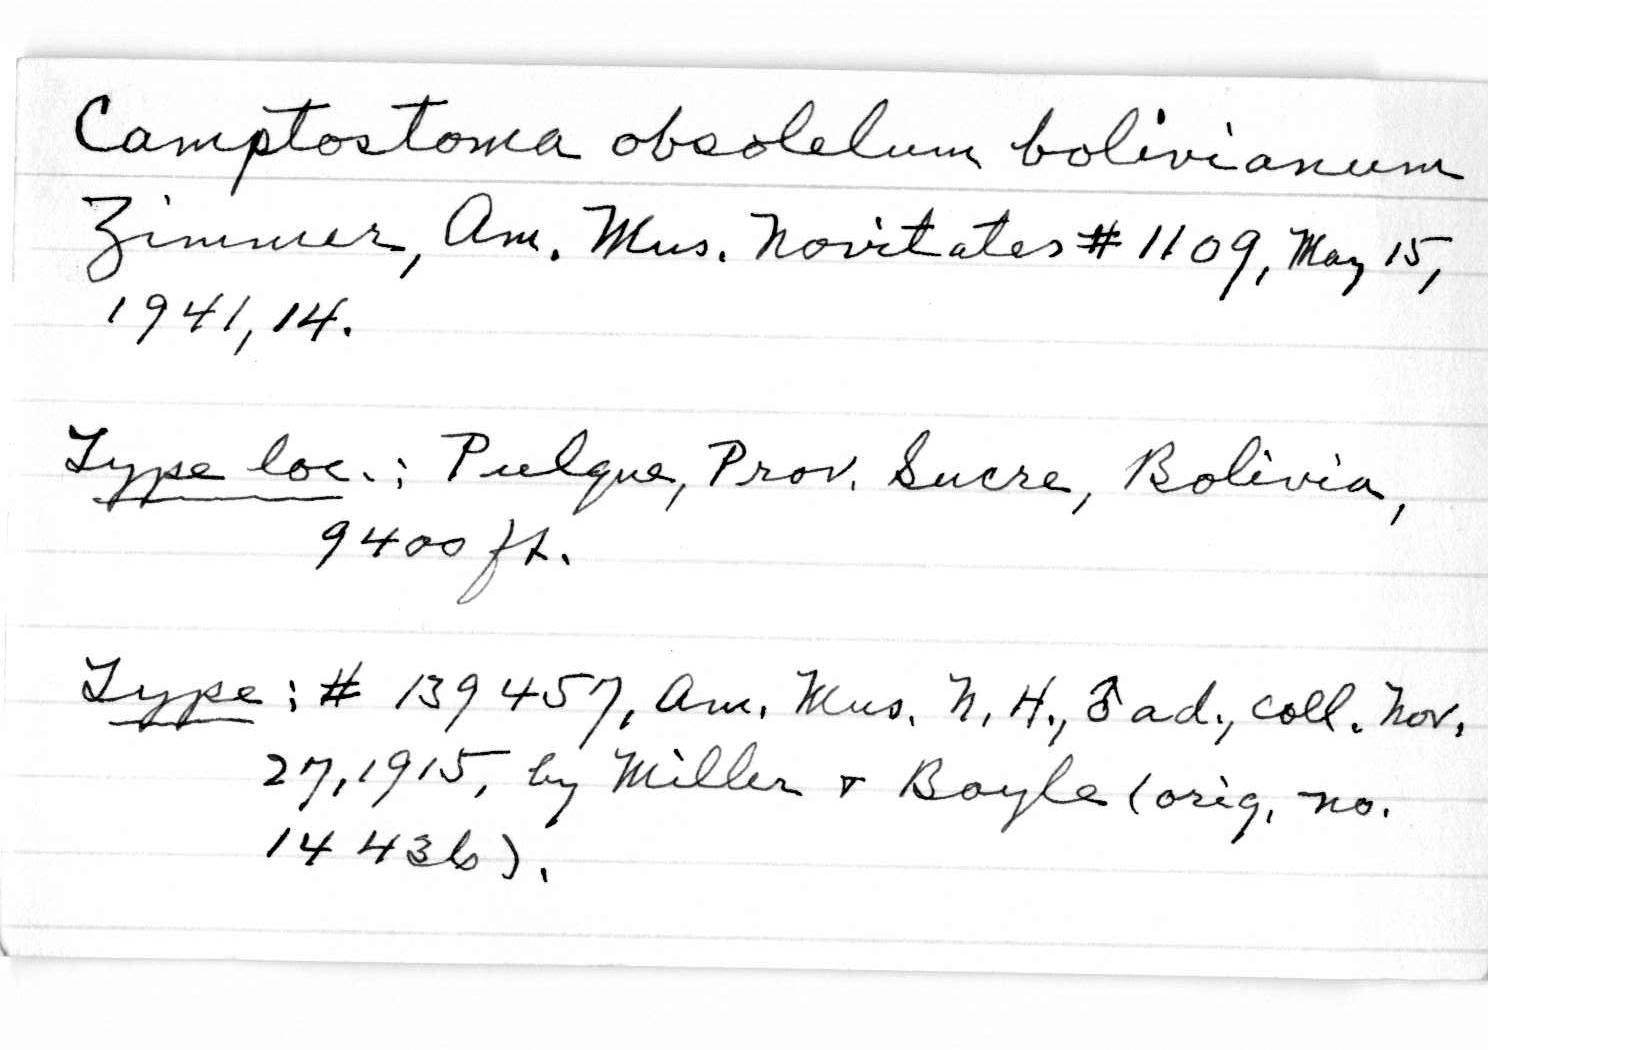 Camptostoma obsoletum bolivianum
Zimmer, Am. Mus. Novitates # 1109, May 15,
1941, 14.
Type loc.: Pulque, Prov. Sucre, Bolivia,
9400 ft.
Type: # 139457, Am. Mus. N. H., ♂ ad., coll. Nov.
27, 1915, by Miller & Boyle (orig. no.
14436).